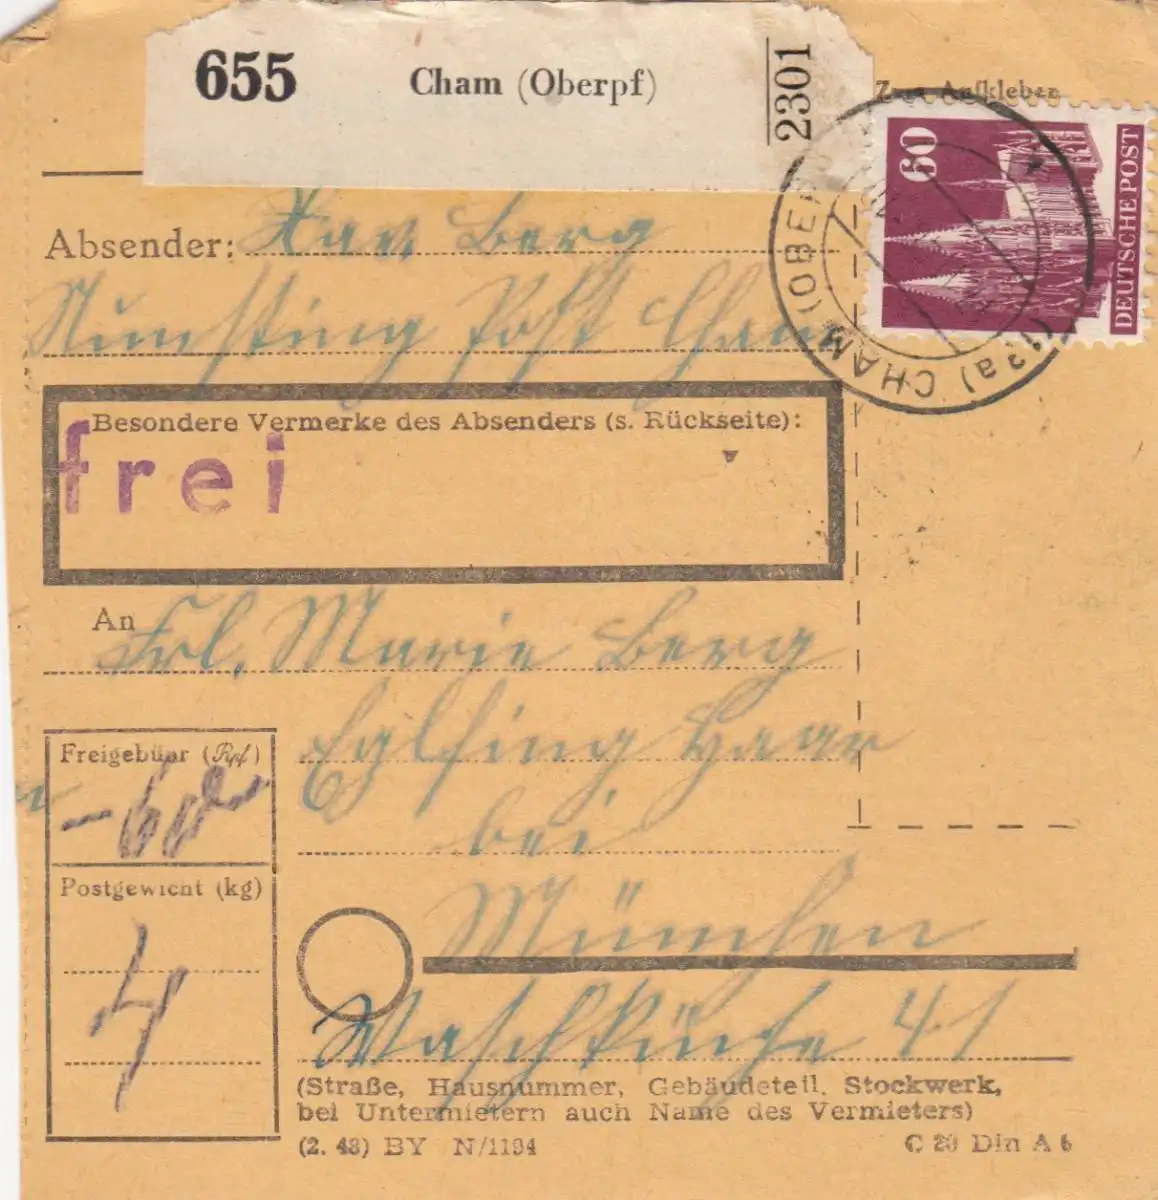 655 Cham (Oberpf) 2301
Zum Aufkleben
60
DEUTSCHE POST
(13a) CHAM (OBERPF
Absender: Xav Berg
Post Cham
Besondere Vermerke des Absenders (s. Rückseite):
frei
An Frl. Marie Berg
Eglfing Haar
bei
München
Waschküche 41
Freigebühr (Rpf)
-60-
Postgewicht (kg)
4
(Straße, Hausnummer, Gebäudeteil, Stockwerk,
bei Untermietern auch Name des Vermieters)
(2. 48) BY N/1194
C 20 Din A 6